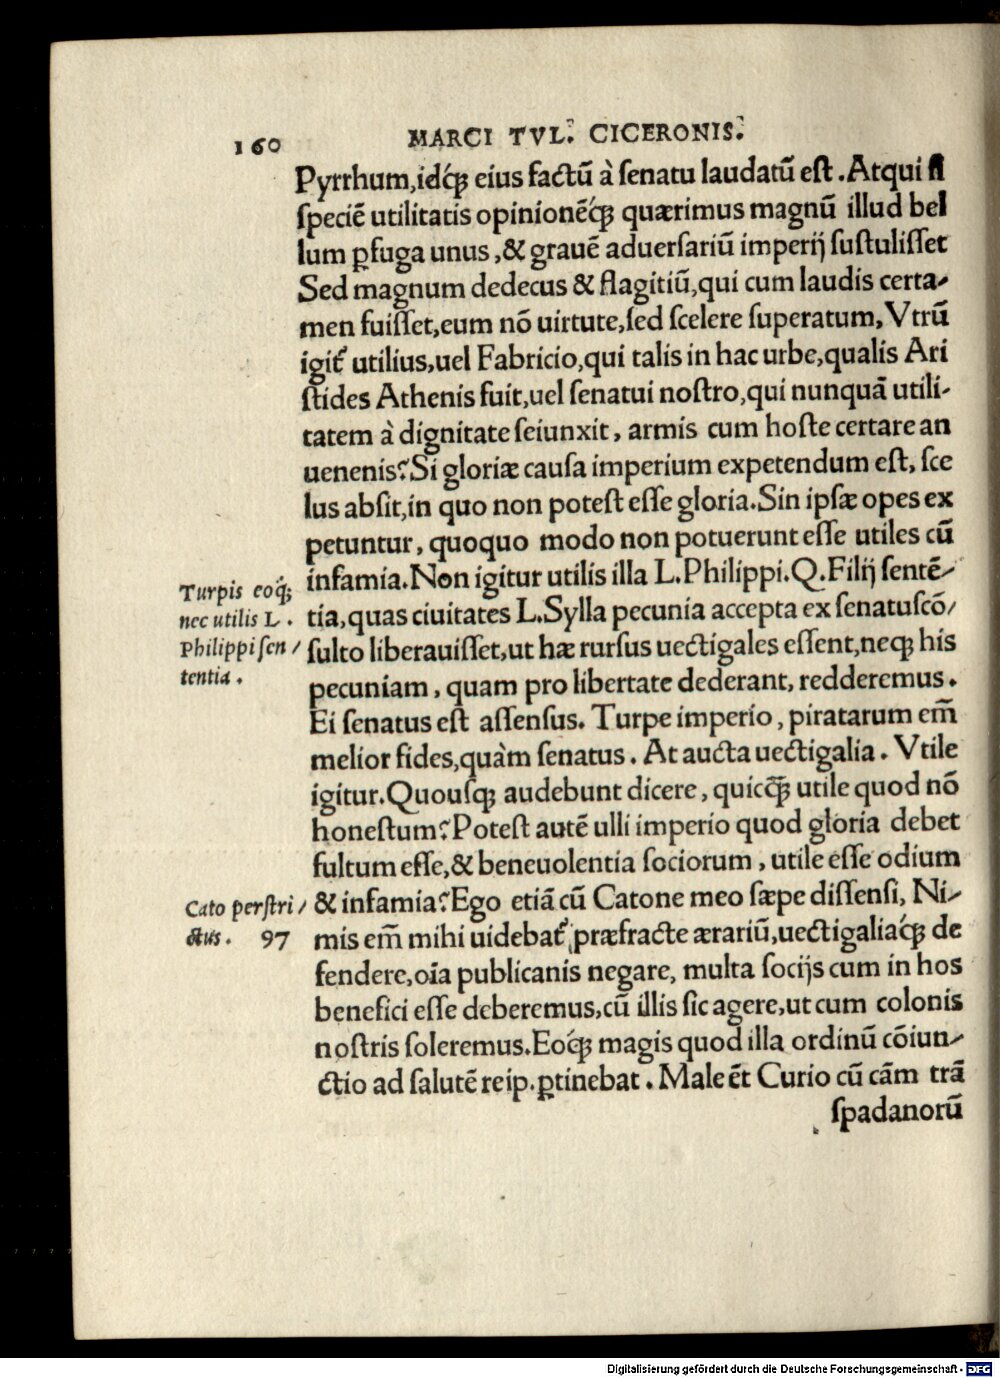 160 MARCI TVL. CICERONIS.
Pyrrhum,idq́ꝫ eius factū à ſenatu laudatū eſt .Atqui ſi
ſpeciē utilitatis opinionēq́ꝫ quærimus magnū illud bel
lum ꝑfuga unus ,& grauē aduerſariū imperij ſuſtuliſſet
Sed magnum dedecus & flagitiū,qui cum laudis certa-
men fuiſſet,eum nō uirtute,ſed ſcelere ſuperatum,Vtrū
igit᷑ utilius,uel Fabricio,qui talis in hac urbe,qualis Ari
ſtides Athenis fuit,uel ſenatui noſtro,qui nunquā utili-
tatem à dignitate ſeiunxit, armis cum hoſte certare an
uenenis?Si gloriæ cauſa imperium expetendum eſt, ſce
lus abſit,in quo non poteſt eſſe gloria.Sin ipſæ opes ex
petuntur, quoquo modo non potuerunt eſſe utiles cū
infamia.Non igitur utilis illa L.Philippi.Q.Filij ſentē-
tia,quas ciuitates L.Sylla pecunia accepta ex ſenatuſcō/
ſulto liberauiſſet,ut hæ rurſus uectigales eſſent,neqꝫ his
pecuniam, quam pro libertate dederant, redderemus.
Ei ſenatus eſt aſſenſus. Turpe imperio, piratarum em̄
melior fides,quàm ſenatus. At aucta uectigalia. Vtile
igitur.Quouſqꝫ audebunt dicere, quicq̄ꝫ utile quod nō
honeſtum?Poteſt autē ulli imperio quod gloria debet
fultum eſſe,& beneuolentia ſociorum, utile eſſe odium
& infamia?Ego etiā cū Catone meo ſæpe diſſenſi, Ni-
mis em̄ mihi uidebat᷑ præfracte ærariū,uectigaliaq́ꝫ de
fendere,oīa publicanis negare, multa ſocijs cum in hos
benefici eſſe deberemus,cū illis ſic agere,ut cum colonis
noſtris ſoleremus.Eoq́ꝫ magis quod illa ordinū cōiun-
ctio ad ſalutē reip.ꝑtinebat. Male ēt Curio cū cām trā
ſpadanorū
Turpis eoq́ꝫ
nec utilis L.
Philippi ſen/
tentia.
Cato perſtri/
ctus. 97
Digitalisierung gefördert durch die Deutsche Forschungsgemeinschaft - DFG